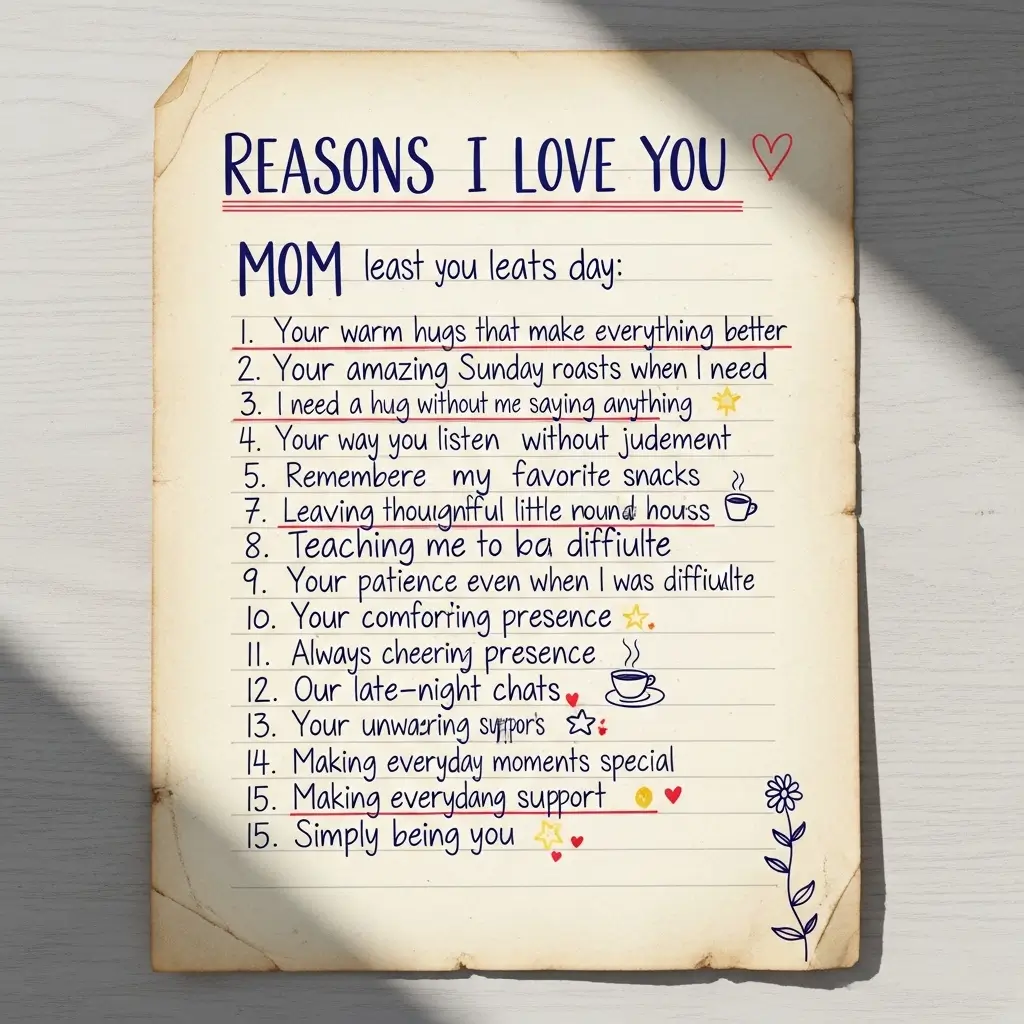 REASONS I LOVE YOU
MOM least you leats day:
1. Your warm hugs that make everything better
2. Your amazing Sunday roasts when I need
3. I need a hug without me saying anything
4. Your way you listen without judement
5. Remembere my favorite snacks
7. Leaving thouignfful little round houss
8. Teaching me to ba diffiulte
9. Your patience even when I was diffiulte
10. Your comforting presence
11. Always cheering presence
12. Our late-night chats
13. Your
14. Making everyday moments special
15. Making everydang support
15. Simply being you